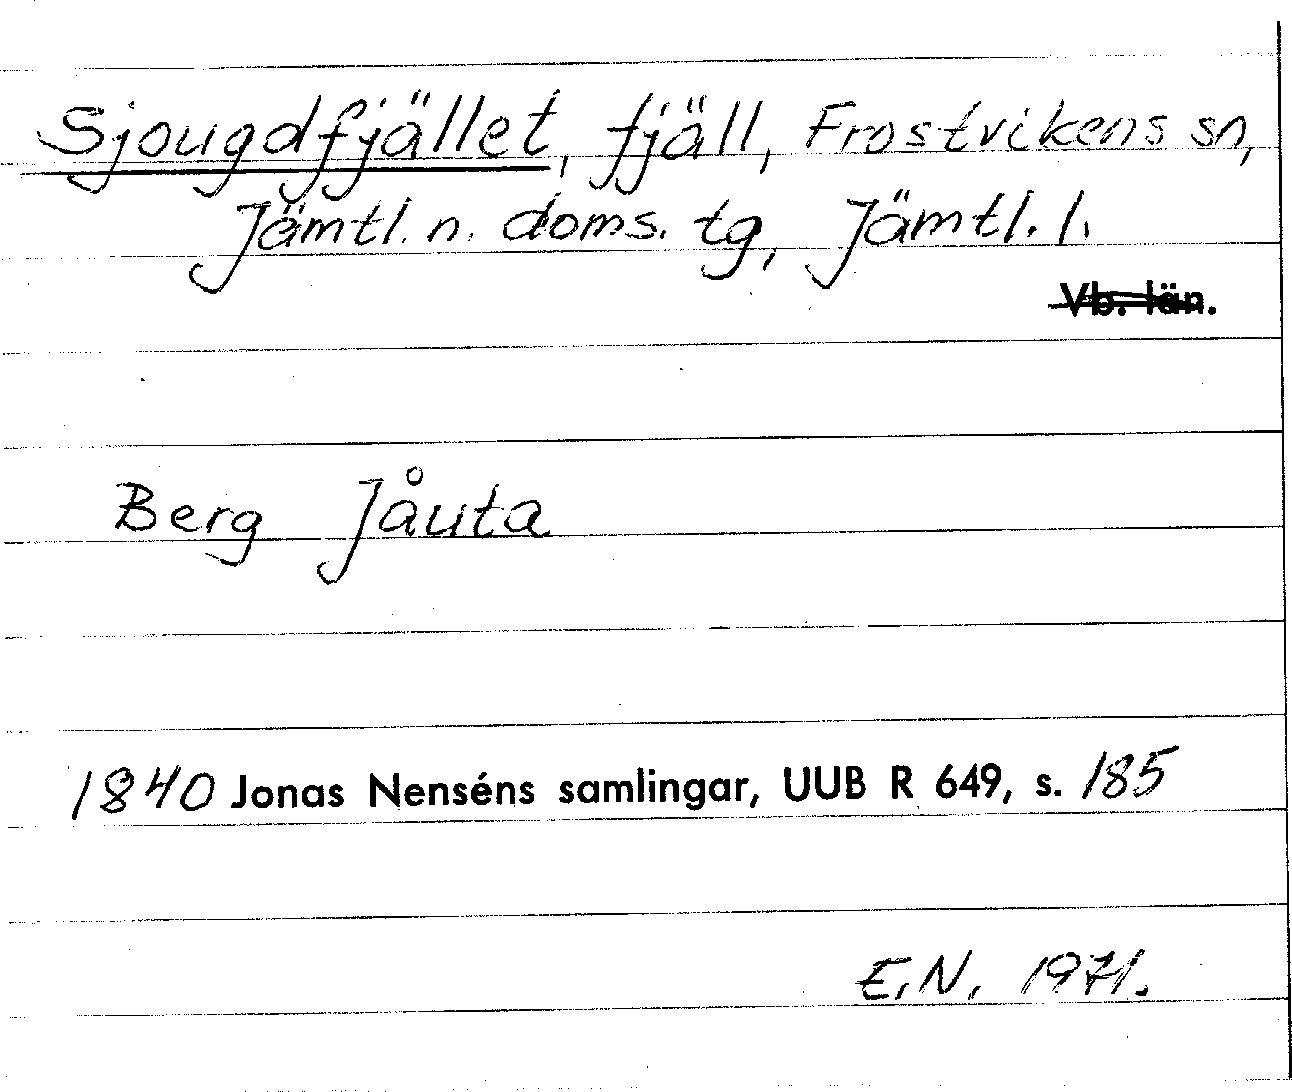 Sjougdfjället, fjäll, Frostvikens sn,
Jämtl. n. doms. tg, Jämtl. l.
Vb. län.
Berg Jåuta
1840 Jonas Nenséns samlingar, UUB R 649, s. 185
E.N. 1971.